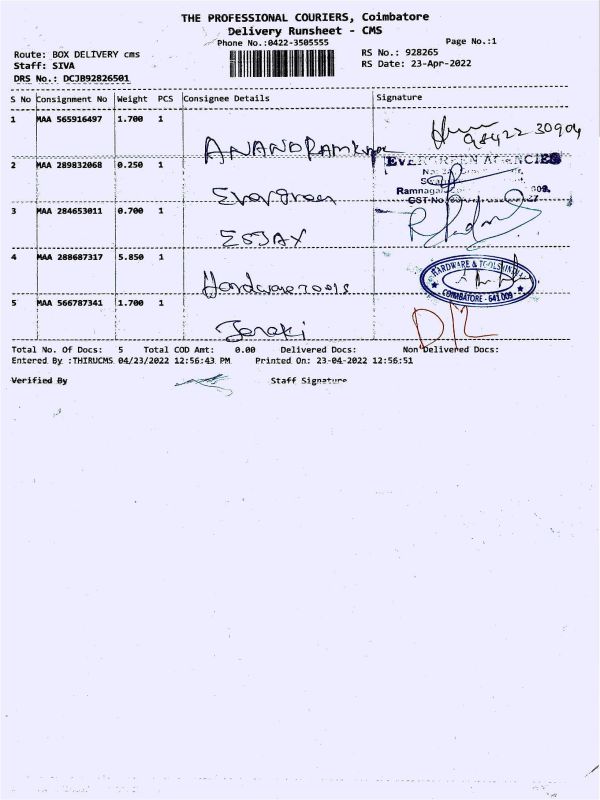 THE PROFESSIONAL COURIERS, Coimbatore
Delivery Runsheet - CMS
Phone No.:0422-3505555
Page No.:1
Route: BOX DELIVERY cms
RS No.: 928265
Staff: SIVA
RS Date: 23-Apr-2022
DRS No.: DCJB92826501
S No Consignment No Weight PCS Consignee Details Signature
1 MAA 565916497 1.700 1
98422 30904
ANANDRAMKUMAR
2 MAA 289832068 0.250 1 EVERGREEN AGENCIES
Ramnagar
GST-No
Evergreen
3 MAA 284653011 0.700 1
ESJAY
4 MAA 288687317 5.850 1 HARDWARE & TOOLS INDIA
COIMBATORE - 641 009
Hardware Tools
5 MAA 566787341 1.700 1 D/L
Janaki
Total No. Of Docs: 5 Total COD Amt: 0.00 Delivered Docs: Non Delivered Docs:
Entered By :THIRUCMS 04/23/2022 12:56:43 PM Printed On: 23-04-2022 12:56:51
Verified By Staff Signature